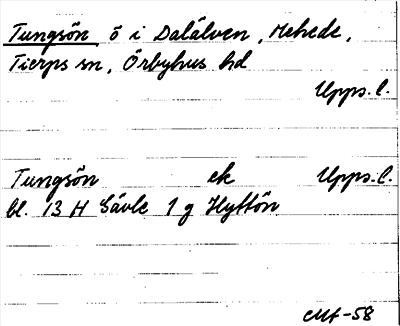 Tungsön ö i Dalälven, Mehede,
Tierps sn, Örbyhus hd
Upps. l.
Tungsön ek Upps. l.
bl. 13 H Gävle 1 g Hyttön
-58